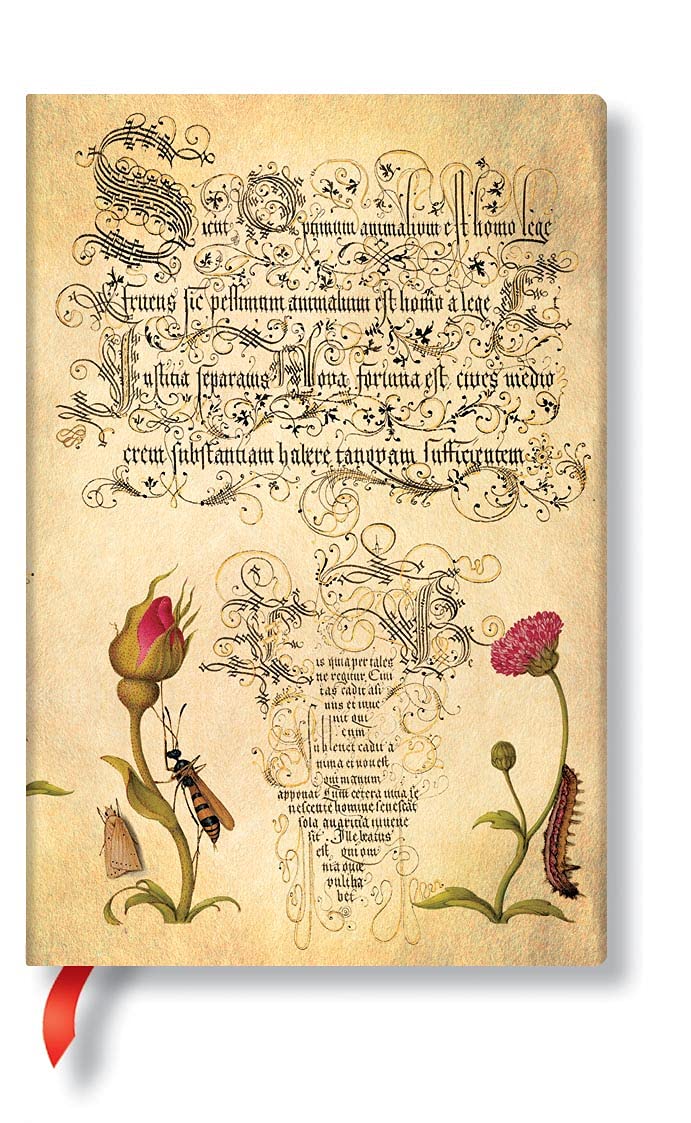 Sicut Optimum animalium est homo lege
fruens sic pessimum animalium est homo a lege Et
Iustitia separatus Nova fortuna est, cives medio
crem substantiam habere tanquam sufficientem
is quia per tales
ne regitur. Civi
tas cadit asi
nus et inve
nit qui
eum
Sublevet cadit a
nima et non est
Qui manum
apponat Cum cetera vitia se
nescente homine senescat
sola avaritia iuvene
sit. Ille beatus
est qui om
nia que
vult ha
bet.